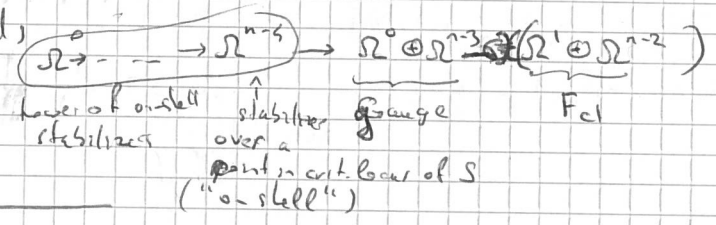 Ω⁰ → - - → Ω^{n-4} → Ω⁰ ⊕ Ω^{n-3} (Ω¹ ⊕ Ω^{n-2})
Tower of on-shell stabilizer Gauge F_cl
stabilizers over a
point in crit. locus of S
("on-shell")